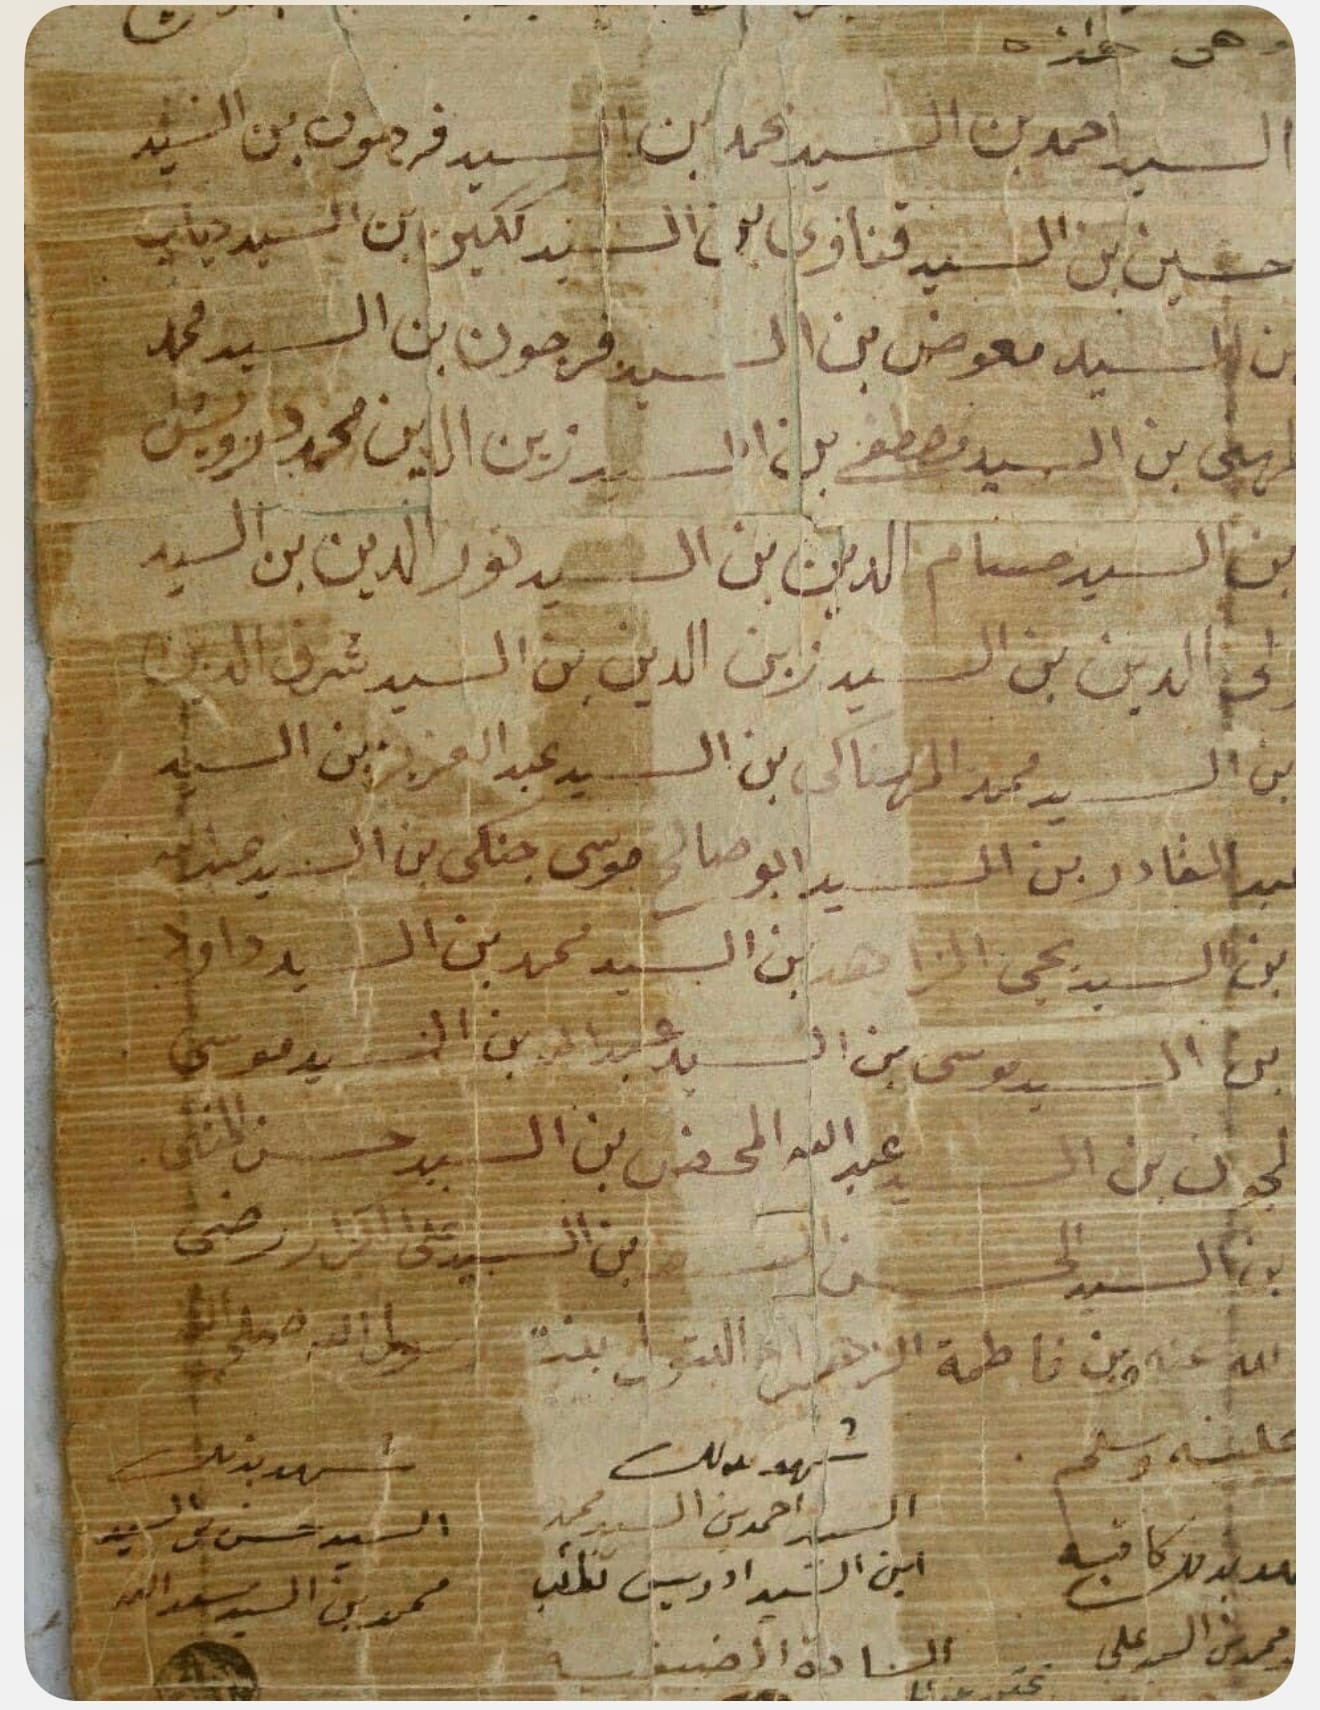 وهى هذه
السيد احمد بن السيد محمد بن السيد فرحون بن السيد
حسين بن السيد قناوى بن السيد بن السيد دياب
بن السيد معوض بن السيد فرحون بن السيد محمد
بن السيد مصطفى بن السيد زين الدين محمد درويش
بن السيد حسام الدين بن السيد نور الدين بن السيد
ولى الدين بن السيد زين الدين بن السيد شرف الدين
بن السيد محمد الهتاكى بن السيد عبد العزيز بن السيد
عبد القادر بن السيد ابو صالح موسى جنكى بن السيد عبد الله
بن السيد يحيى الزاهد بن السيد محمد بن السيد داود
بن السيد موسى بن السيد عبد الله بن السيد موسى
الجون بن السيد عبد الله المحض بن السيد حسن المثنى
بن السيد الحسن السبط بن السيد على الكرار رضى
الله عنه وبن فاطمة الزهراء البتول بنت رسول الله صلى الله
عليه وسلم
شهد بذلك شهد بذلك
شهد بذلك كاتبه السيد احمد بن السيد محمد السيد حسن بن السيد
محمد بن السيد على ابن السيد ادريس نقيب محمد بن السيد سعد الله
السادة